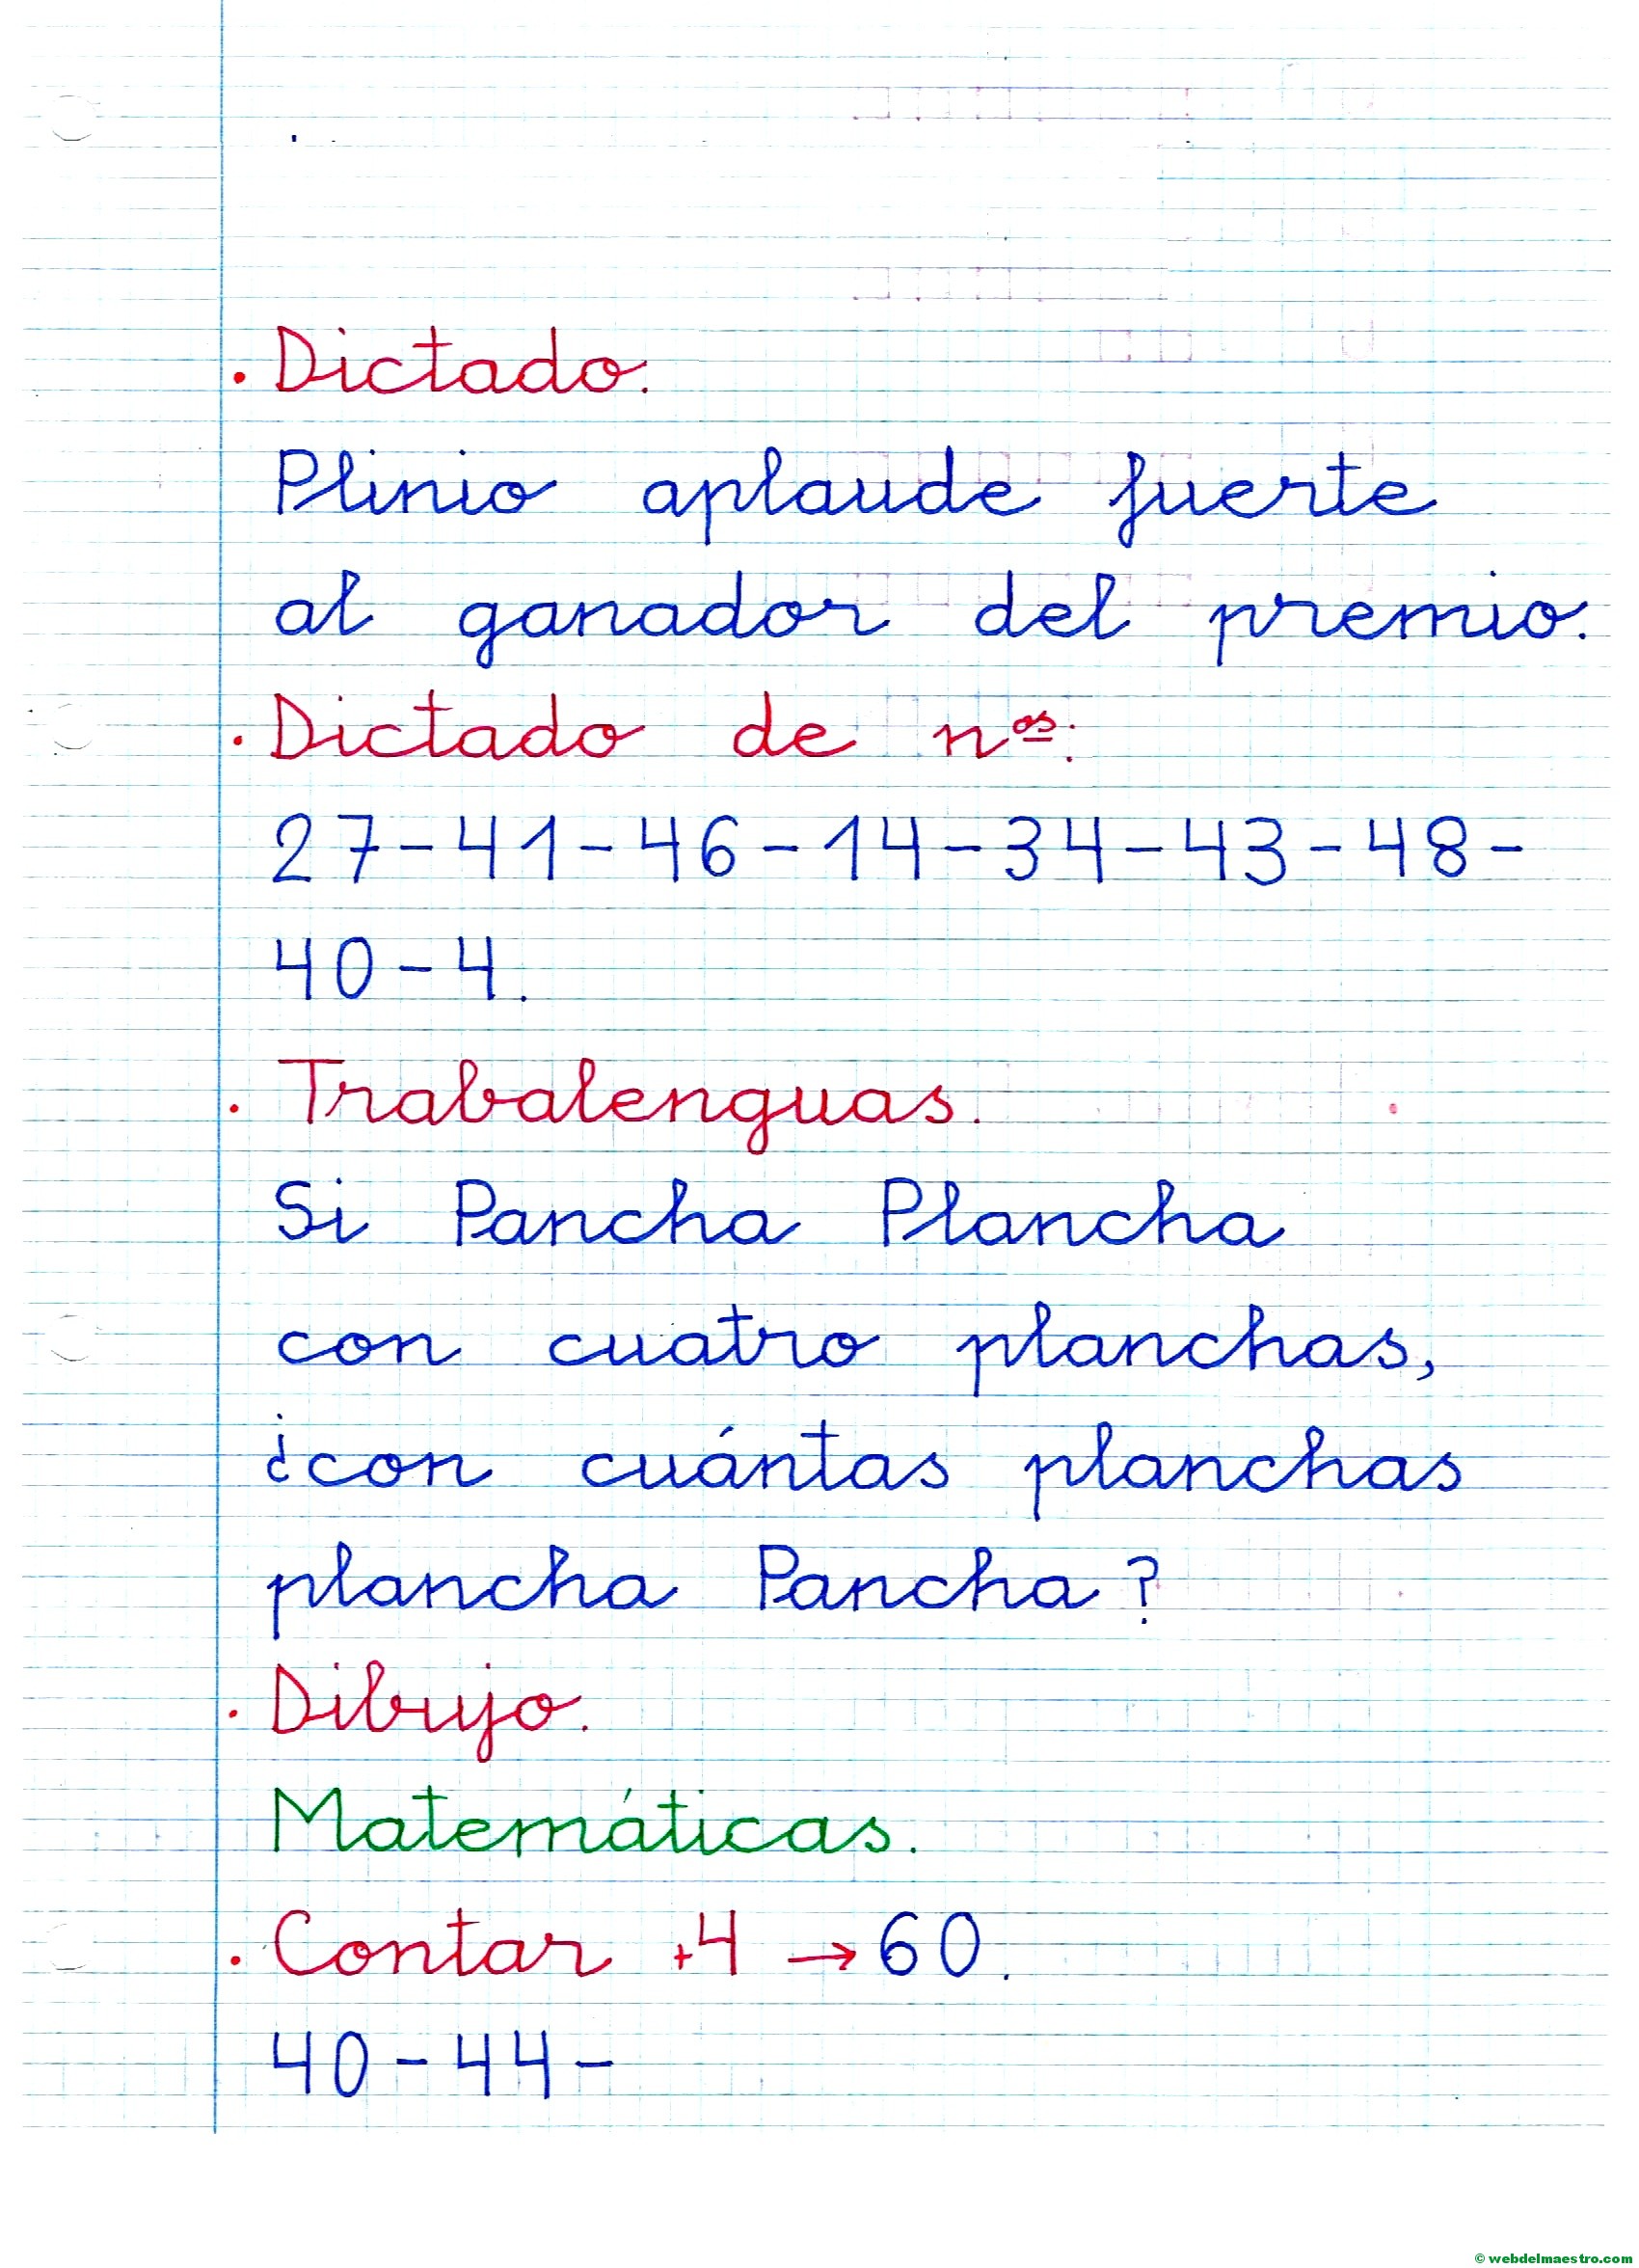 · Dictado.
Plinio aplaude fuerte
al ganador del premio.
· Dictado de nºˢ:
27-41-46-14-34-43-48-
40-4.
· Trabalenguas.
Si Pancha Plancha
con cuatro planchas,
¿con cuántas planchas
plancha Pancha?
· Dibujo.
Matemáticas.
· Contar +4 → 60.
40-44-
© webdelmaestro.com